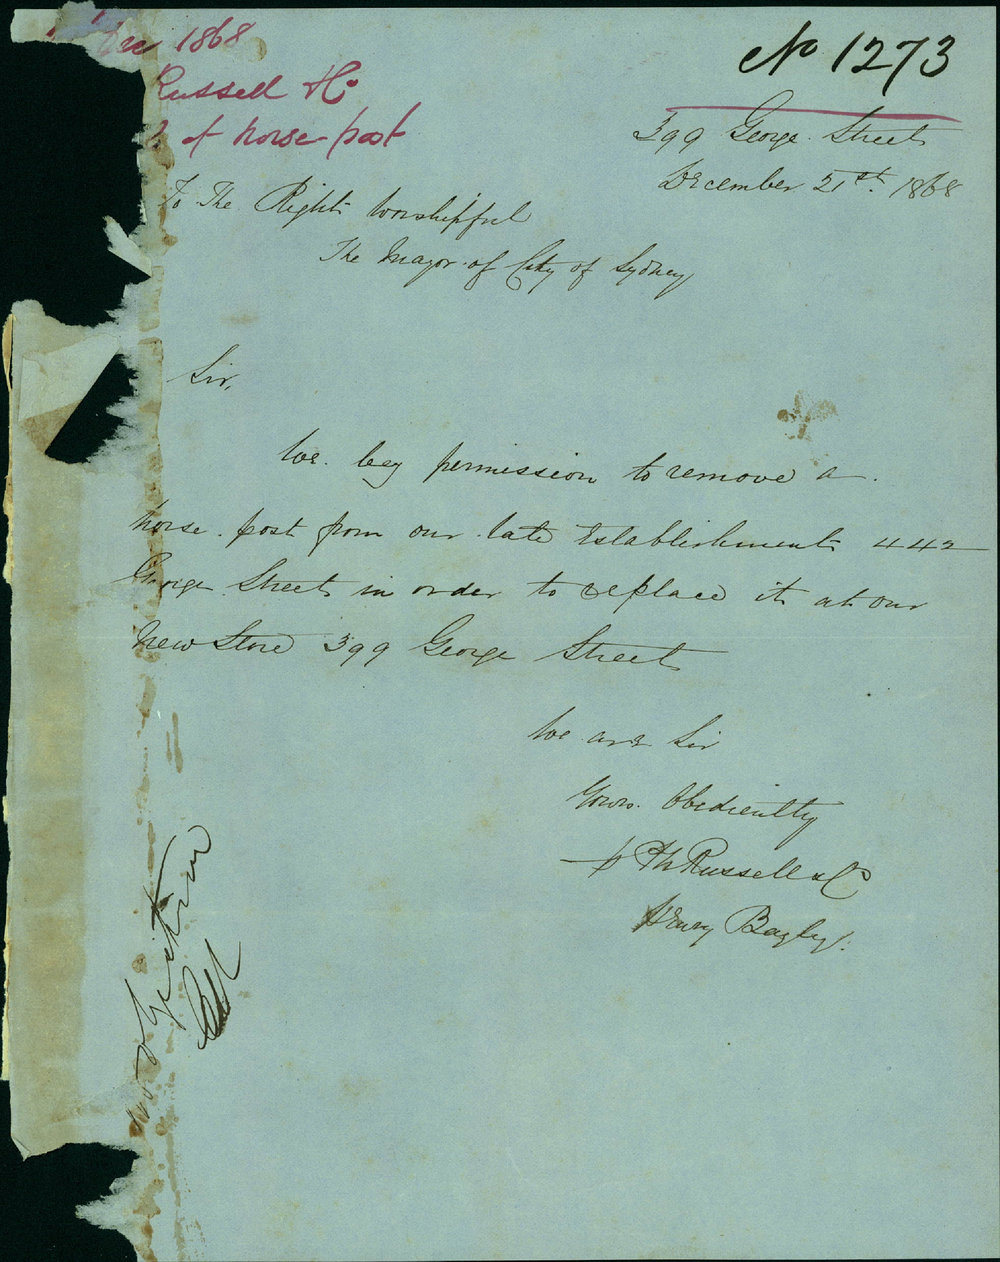 Dec 1868
Russell & Co
of horse post
No 1273
399 George Street
December 21st. 1868
To The Right Worshipful
The Mayor of City of Sydney
Sir,
We beg permission to remove a
horse post from our late Establishment 442
George Street in order to replace it at our
New Store 399 George Street
We are Sir
Yours Obediently
p Th Russell & Co
Henry Bagley.
no objection